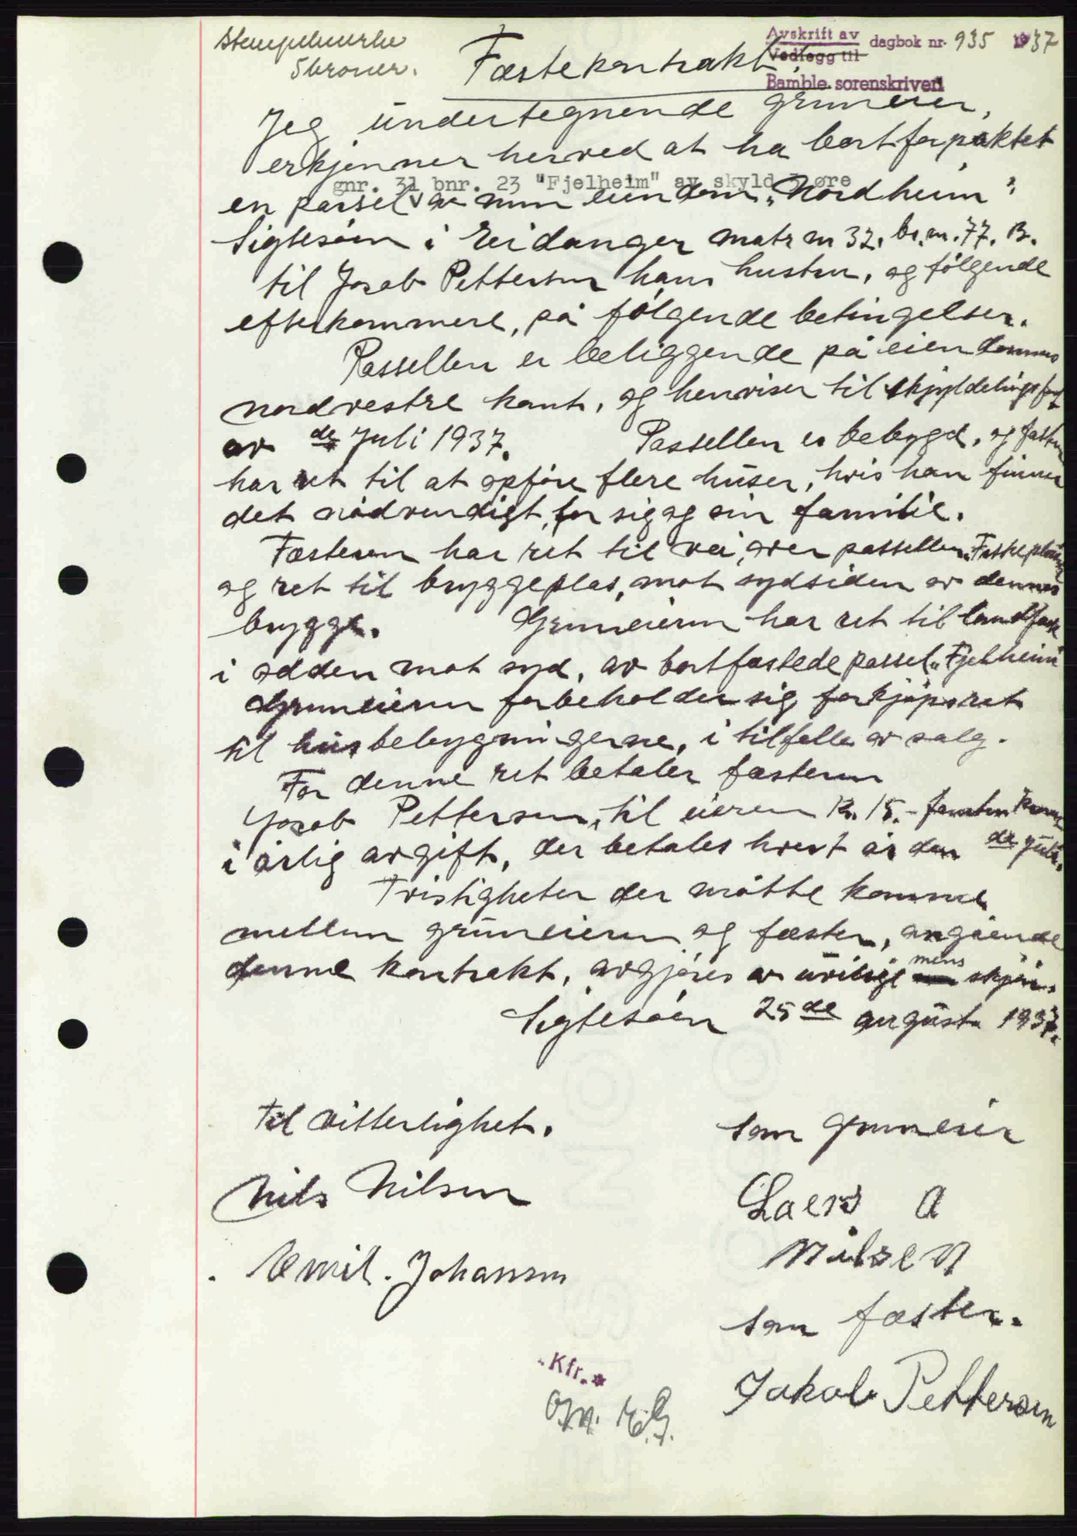 Stempelmerke
5 kroner.
Avskrift av
Vedlegg til
dagbok nr. 935 1937
Bamble sorenskriveri
Fæstekontrakt.
Jeg undertegnende gruneier,
erkjenner herved at ha bortforpaktet
gnr. 31 bnr. 23 "Fjelheim" av skyld øre
en parsel av min eiendom "Nordheim"
Sigtesøen i Eidanger matr nr 32. br. nr. 77. B.
til Jacob Pettersen hans hustru, og følgende
efterkommere, på følgende betingelser.
Passellen er beliggende på eiendommens
nordvestre kant, og henviser til skjyldelings
av de Juli 1937. Passellen er bebygd, og fæsteren
har ret til at opføre flere huser, hvis han finner
det nødvendigt, for sig og sin familie.
Fæsteren har ret til vei, over passellen
og ret til bryggeplas, mot sydsiden av dennes
brygge. Gruneieren har ret til landfæste
i odden mot syd, av bortfæstede passel "Fjelheim"
Gruneieren forbeholder sig forkjøpsret
til husbebygningerne, i tilfelle av salg.
For denne ret betaler fæsteren
Jacob Pettersen, til eieren Kr. 15.- femten kroner
i årlig avgift, der betales hvert år den de juli.
Tvistigheter der måtte komme
mellem gruneieren og fæster, angående
denne kontrakt, avgjøres av uvillige mens skjøn.
Sigtesøen 25de augustu 1937.
Til vitterlighet.
som gruneier
Nils Nilsen
Laers A
Nilsen
Emil. Johansen
som fæster.
Jakob Pettersen
Kfr.